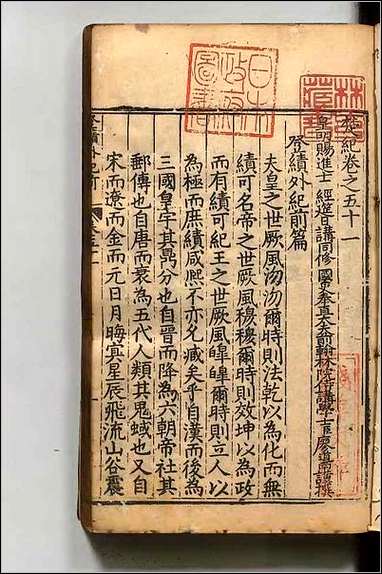 紀卷之五十一
皇明賜進士 經筵日講同修 國奉直大夫前翰林院侍講學士廖道南謹撰
登績外紀前篇
夫皇之世厥風沕沕爾時則法乾以為化而無
績可名帝之世厥風穆穆爾時則效坤以為政
而有績可紀王之世厥風皡皡爾時則立人以
為極而庶績咸熙不亦允臧矣乎自漢而後為
三國皇宇其鼎分也自晉而降為六朝帝社其
郵傳也自唐而衰為五代人類其鬼蜮也又自
宋而遼而金而元日月晦冥星辰飛流山谷震
日本
政府
圖書